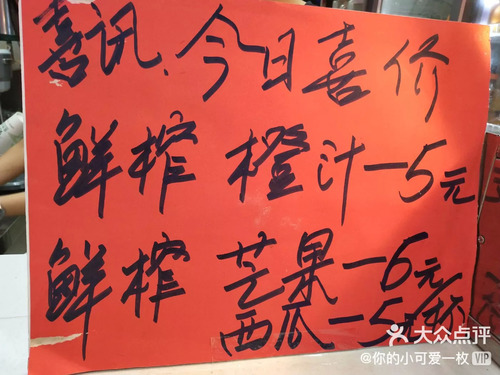 喜讯、今日喜价
鲜榨 橙汁-5元
鲜榨 芒果-6元
西瓜-5元/杯
大众点评
@你的小可爱一枚 VIP